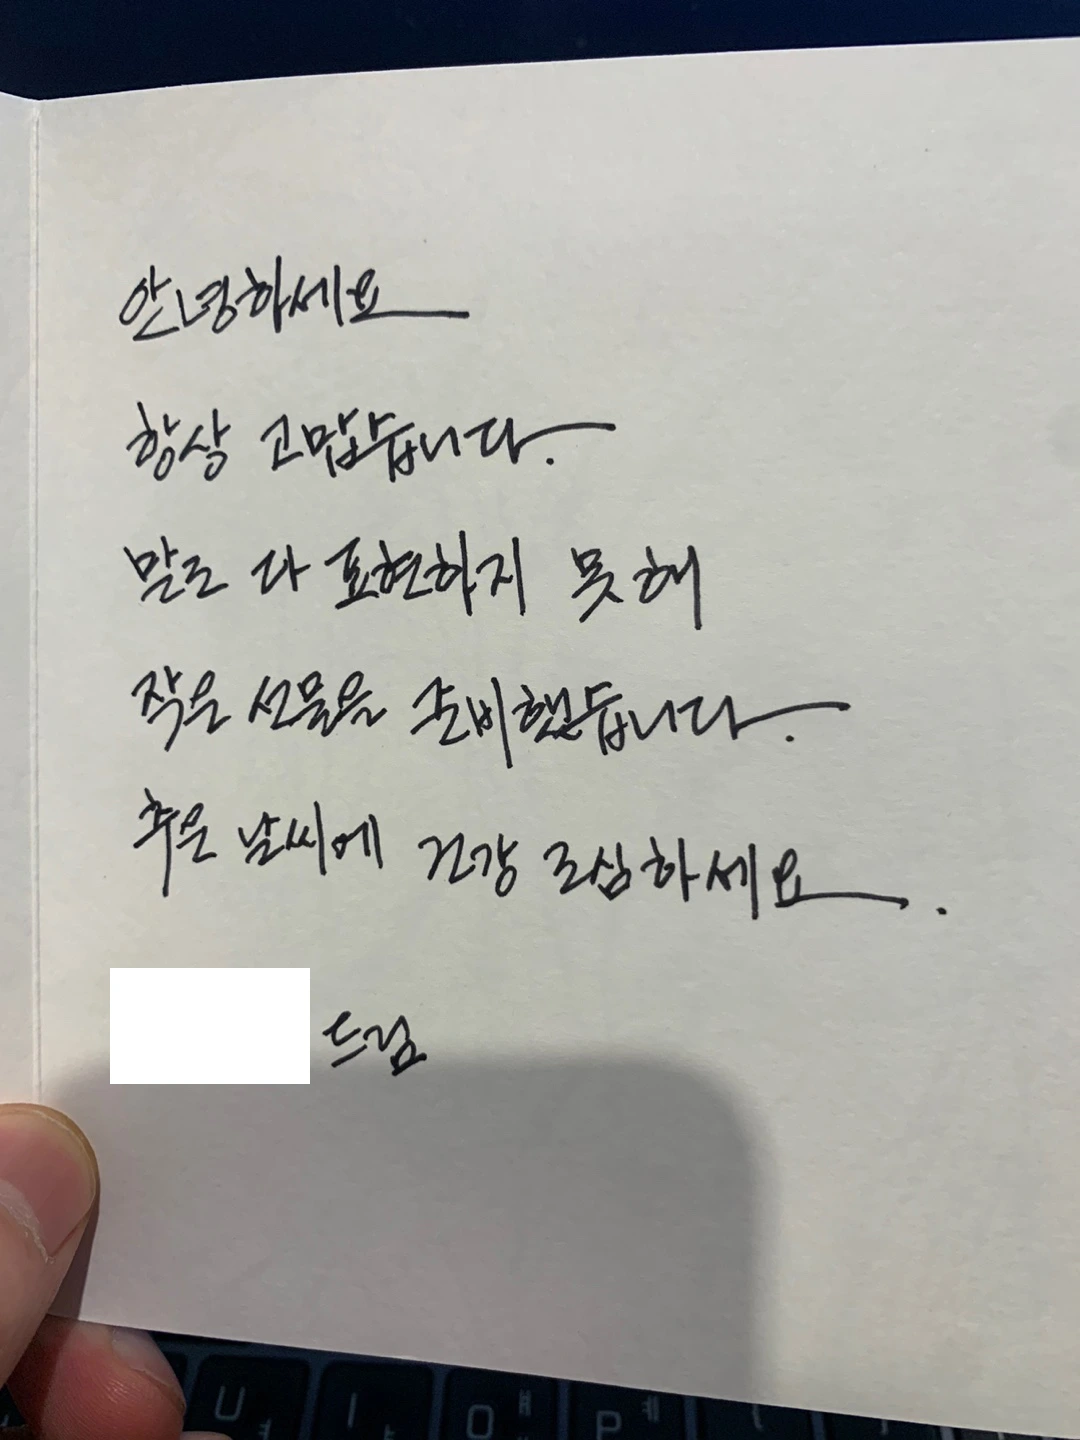 안녕하세요
항상 고맙습니다.
말로 다 표현하지 못해
작은 선물을 준비했습니다.
추운 날씨에 건강 조심하세요.
드림
U ㅕ I ㅑ O ㅐ ㅒ P ㅔ ㅖ [ ]